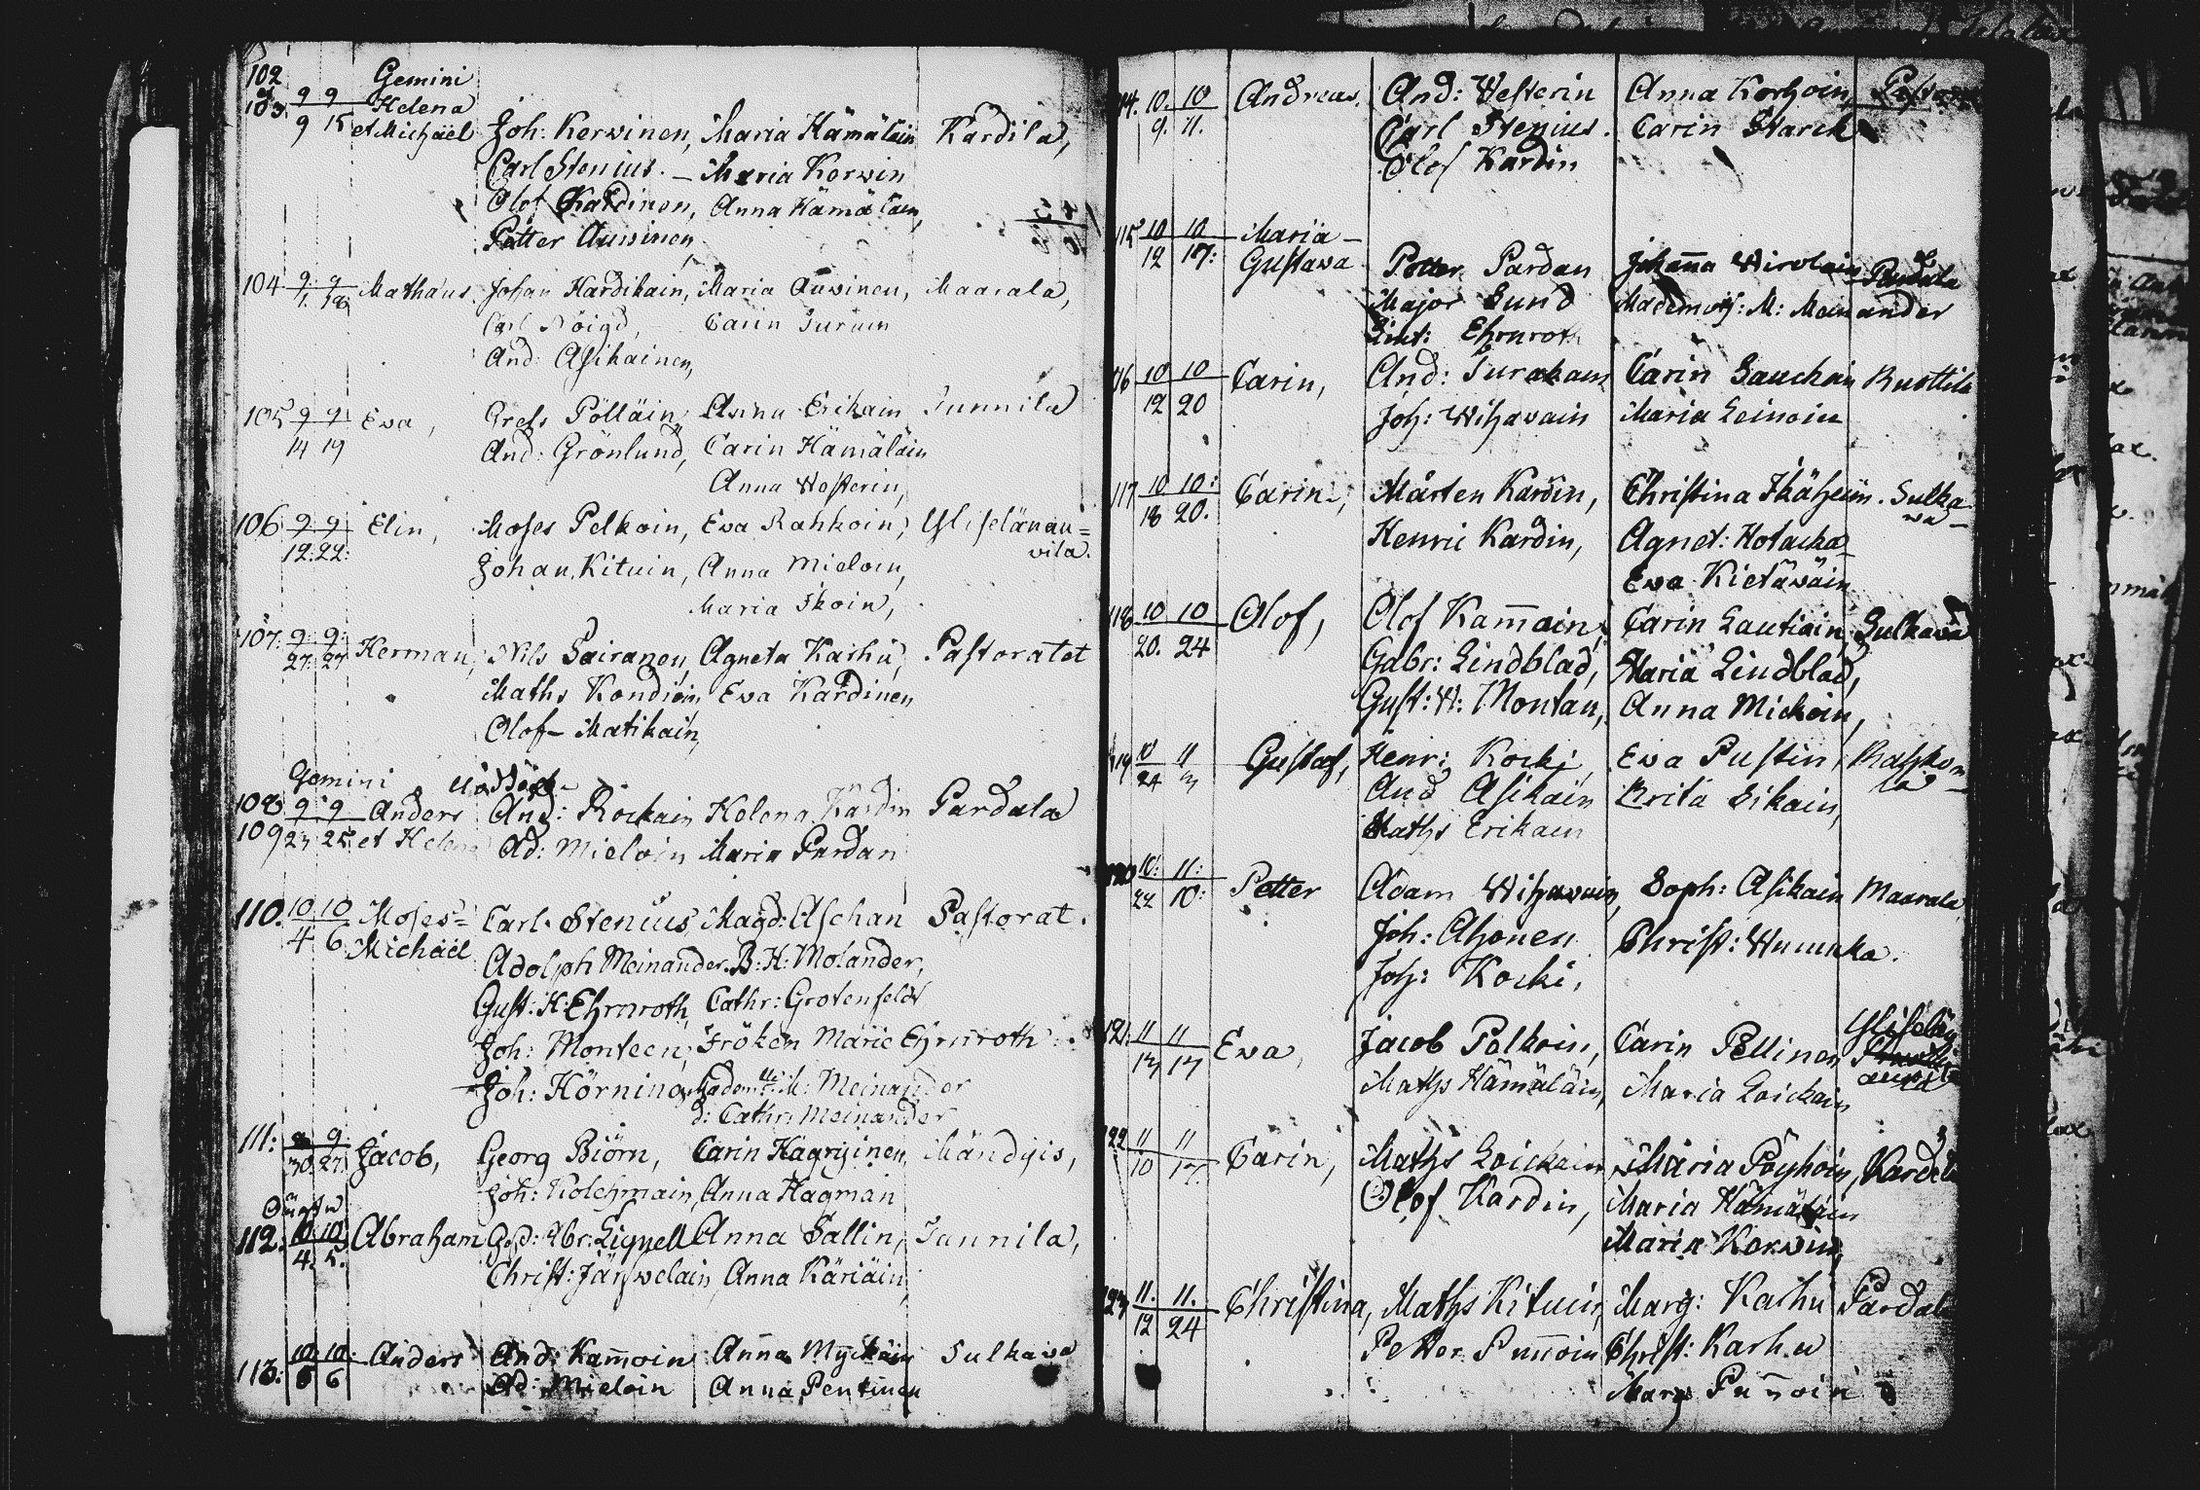 102 Gemini
103. 9 9 Helena
9 15 et Michael Joh: Kerwinen, Maria Hämäläin Kardila,
Carl Stenius. – Maria Kerwin
Olof Kardinen, Anna Hämäläin,
Petter Auvinen,
104 9. 9 Mathäus. Johan Hardikain, Maria Auwinen, Maarala,
1. 18 Carl Carin Turuin
And: Asikainen,
105 9 9 Ewa, Grels Pölläin, Anna Erikain Tunnila
14 19 And: Grönlund, Carin Hämäläin
Anna Westerin,
106 9 9 Elin, Moses Pelkoin, Ewa Rahkoin,
12: 22: Johan Kituin, Anna Mieloin, vila.
Maria Ikoin,
107. 9: 9: Herman, Nils Sairanen, Agneta Karhu, Pastoratet
27: 27 Maths Kondiain, Ewa Kardinen
Olof – Matikain,
Gemini
108 9 9 Anders And: Rockain Helena Kardin Pardala
109 23 25 et Helena Ad: Mieloin Maria Pardan
110. 10 10 Moses= Carl Stenius Magd: Aschan Pastorat.
4 6. Michael Adolph Meinander. B: H: Molander,
Gust: H: Ehrnroth, Cathr: Grotenfeldt
Joh: Monteen, Fröken Marie Ehrnroth
Joh: Hörning, M: Meinander
d: Cathr: Meinander
111: 9 Jacob, Georg Biörn, Carin Hagrÿinen, Mändyis,
30 27 Joh: Kolehmain, Anna Hagman
112. 10 10 Abraham God: Abr: Lignell Anna Sallin, Tunnila,
4. 5. Christ: Järfwelain Anna Käriäin,
113: 10: 10: Anders And: Kam̄oin Anna Myckäin Sulkawa
6 6 Ad: Mieloin Anna Pentinen
114. 10. 10 Andreas, And: Westerin Anna Korhoin
9. 11. Carl Stenius. Carin Starck
Olof Kardin
115 10 10 Maria –
12 17: Gustawa Petter Pardan Johan̄a Wirolain Pardala
Major Lund M: Meinander
Ehrnroth
116 10 10 Carin, And: Turakain Carin Lauchain Ruottila
12 20 Joh: Wihawain Maria Leinoin
117 10 10: Carin, Mårten Kardin, Christina Ikäheim. Sulka
18 20. Henric Kardin, Agnet: Hotacka wa –
Ewa Kietäwäin
118 10 10 Olof, Olof Kam̄oin, Carin Lautiain, Sulkawa
20. 24 Gabr: Lindblad, Maria Lindblad,
Gust: W: Montan, Anna Mickoin,
119 10 11 Gustaf, Henr: Kocki, Ewa Pustin,
24 3 And Asikain Brita Sikain, la –
Maths Erikain
120 10: 11: Petter Adam Wihawain, Soph: Asikain Maarala
22 10: Joh: Ahonen Christ:
Joh: Kocki,
121: 11 11 Ewa, Jacob Palkoin, Carin Pellinen
13 17 Maths Hämäläin, Maria Loickain
122 11 11 Carin, Maths Loickain, Maria Pöyhöin, Kardila
10 17. Olof Kardin, Maria Hämäläin
Maria Kerwin,
123 11. 11. Christina, Maths Kituin, Marg: Karhu Pardala
12 24 Petter Pun̄oin Christ: Karhu
Marg Pun̄oin